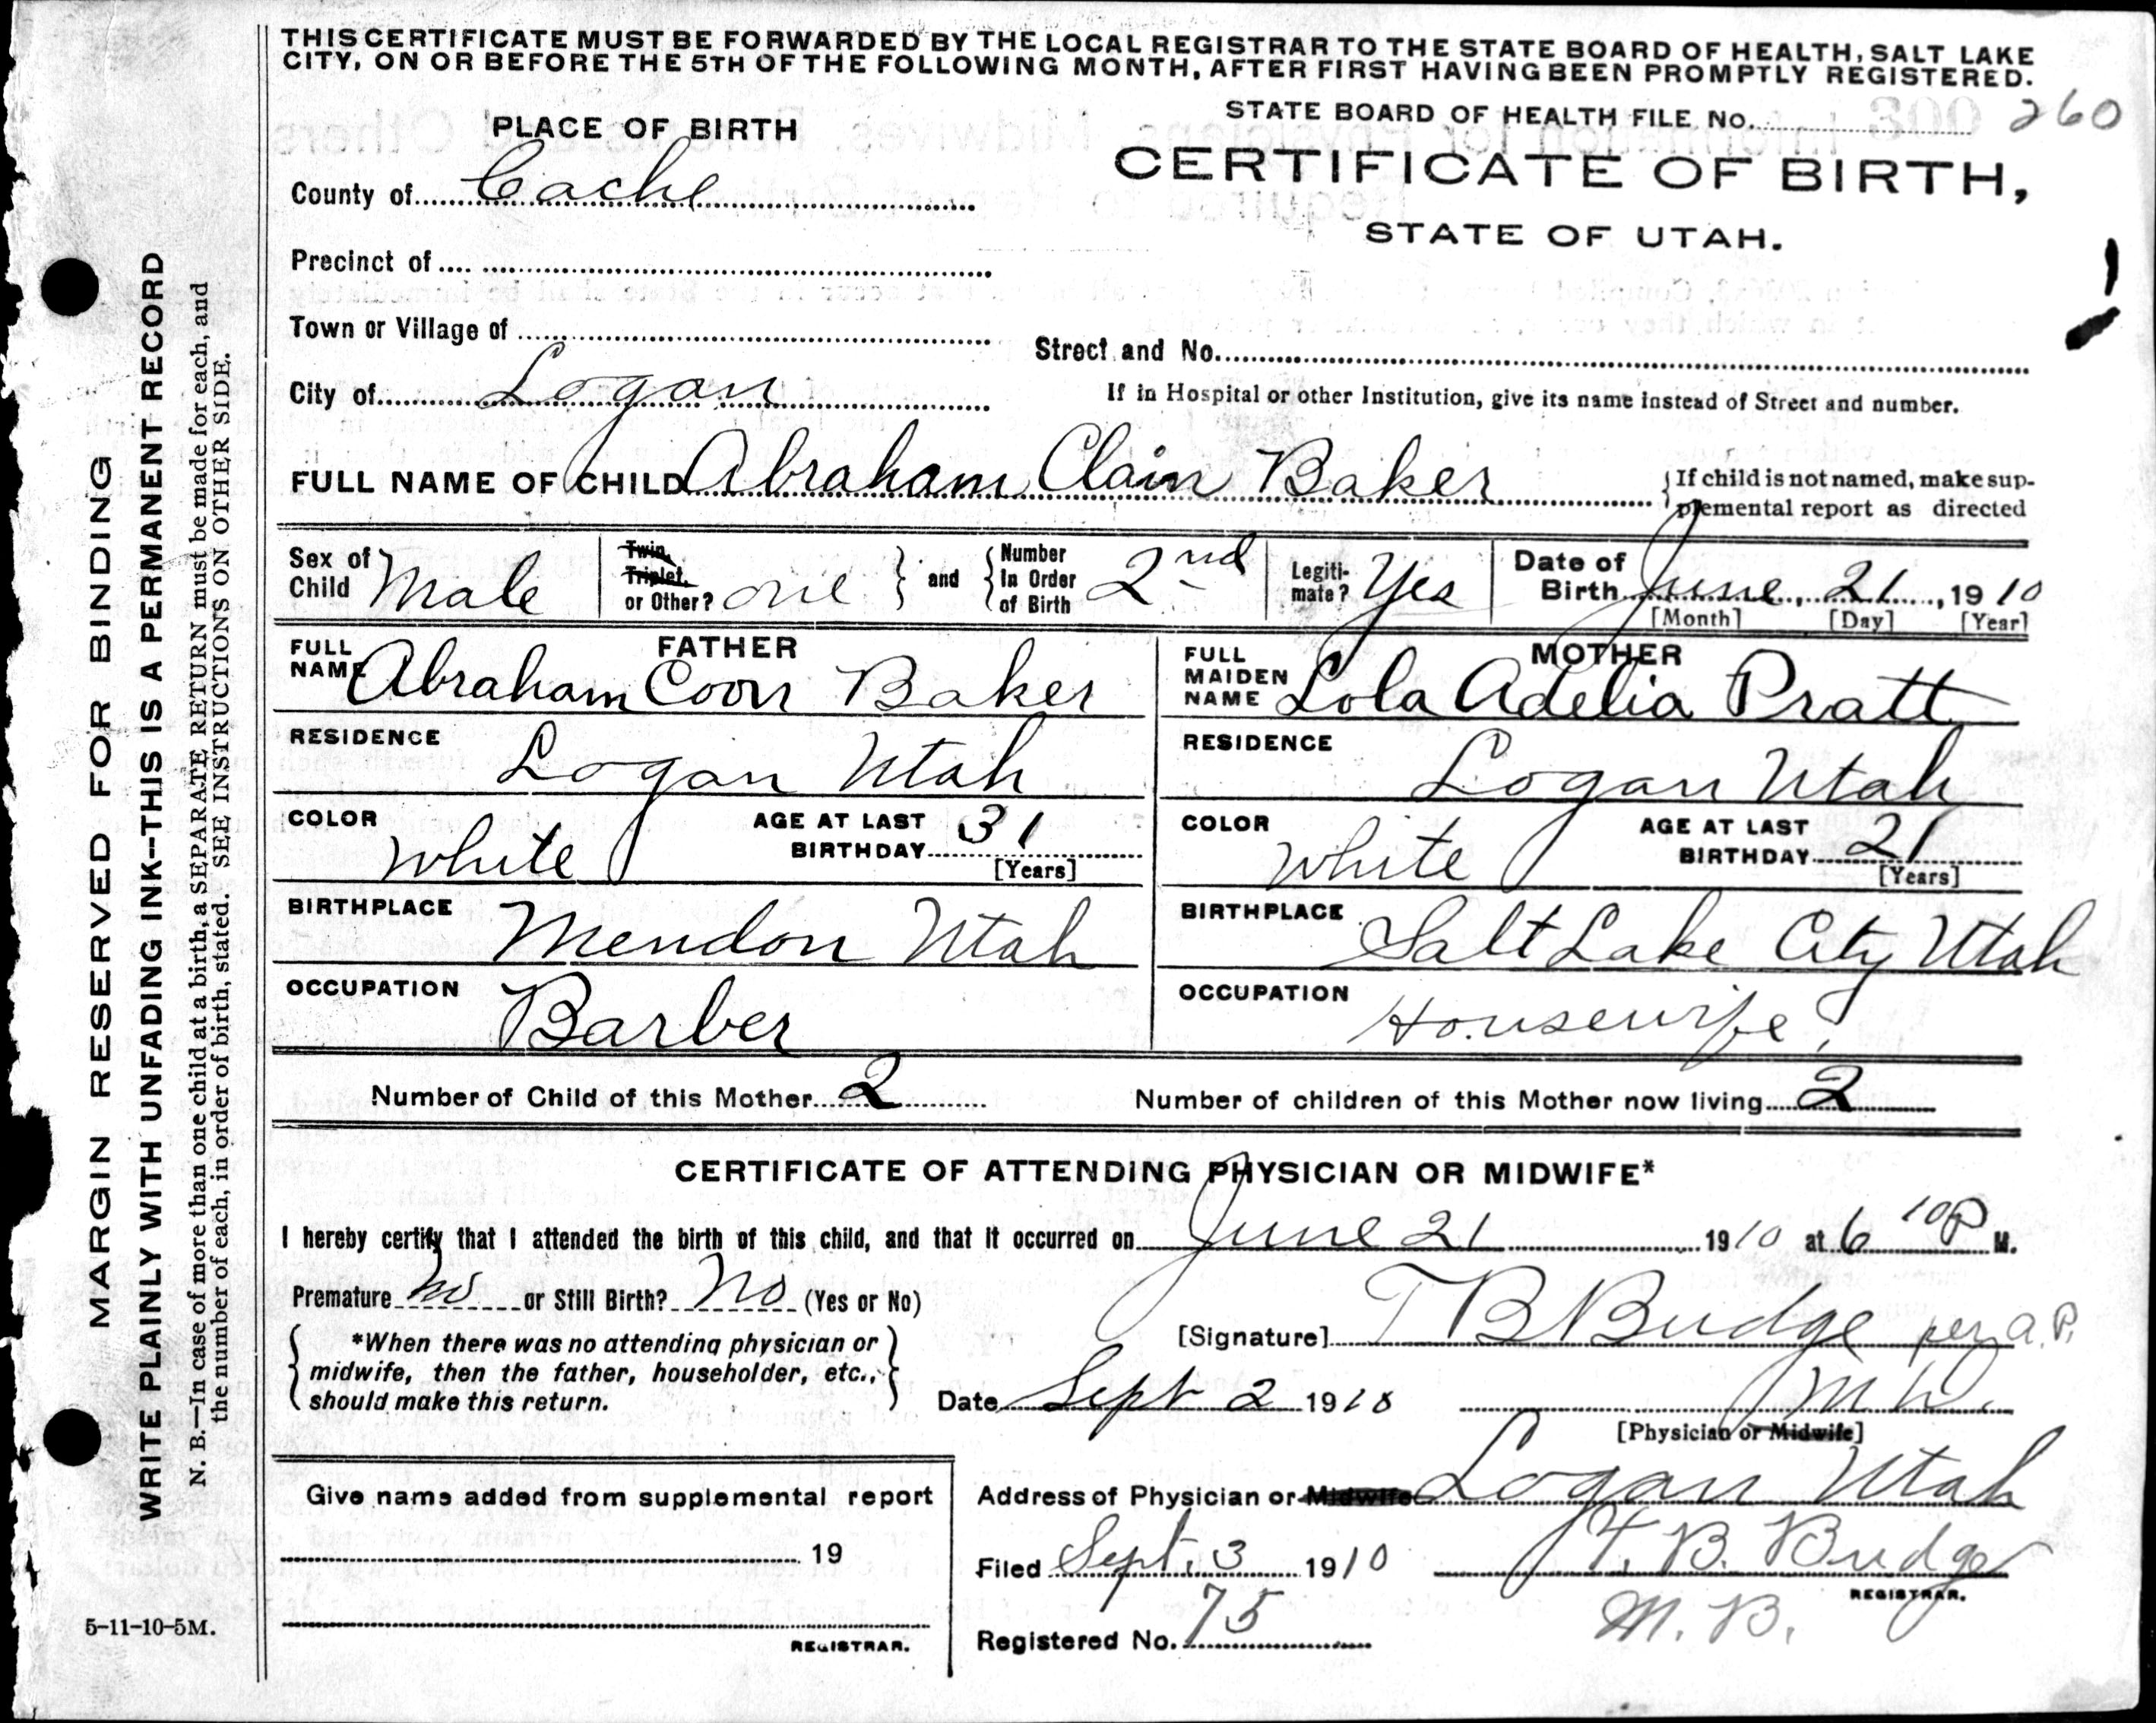 THIS CERTIFICATE MUST BE FORWARDED BY THE LOCAL REGISTRAR TO THE STATE BOARD OF HEALTH, SALT LAKE
CITY, ON OR BEFORE THE 5TH OF THE FOLLOWING MONTH, AFTER FIRST HAVING BEEN PROMPTLY REGISTERED.
STATE BOARD OF HEALTH FILE No. 300 260
PLACE OF BIRTH
CERTIFICATE OF BIRTH,
STATE OF UTAH.
County of Cache
Precinct of
Town or Village of
Street and No.
City of Logan
If in Hospital or other Institution, give its name instead of Street and number.
FULL NAME OF CHILD Abraham Clain Baker
If child is not named, make sup-
plemental report as directed
Sex of Child Male
Twin, Triplet, or Other? one
and Number In Order of Birth 2nd
Legiti-mate? Yes
Date of Birth June, 21, 1910
[Month] [Day] [Year]
FATHER
FULL NAME Abraham Coon Baker
RESIDENCE Logan Utah
COLOR White
AGE AT LAST BIRTHDAY 31
[Years]
BIRTHPLACE Mendon Utah
OCCUPATION Barber
MOTHER
FULL MAIDEN NAME Lola Adelia Pratt
RESIDENCE Logan Utah
COLOR White
AGE AT LAST BIRTHDAY 21
[Years]
BIRTHPLACE Salt Lake City Utah
OCCUPATION Housewife
Number of Child of this Mother 2
Number of children of this Mother now living 2
CERTIFICATE OF ATTENDING PHYSICIAN OR MIDWIFE*
I hereby certify that I attended the birth of this child, and that it occurred on June 21 1910 at 6 10 P M.
Premature no or Still Birth? No (Yes or No)
*When there was no attending physician or
midwife, then the father, householder, etc.,
should make this return.
[Signature] T B Budge per a. P.
Date Sept 2 1910
M D.
[Physician or Midwife]
Give name added from supplemental report
19
REGISTRAR.
Address of Physician or Midwife Logan Utah
Filed Sept. 3 1910
T. B. Budge
REGISTRAR.
Registered No. 75
M. B.
5-11-10-5M.
MARGIN RESERVED FOR BINDING
WRITE PLAINLY WITH UNFADING INK--THIS IS A PERMANENT RECORD
N. B.—In case of more than one child at a birth, a SEPARATE RETURN must be made for each, and
the number of each, in order of birth, stated. SEE INSTRUCTIONS ON OTHER SIDE.